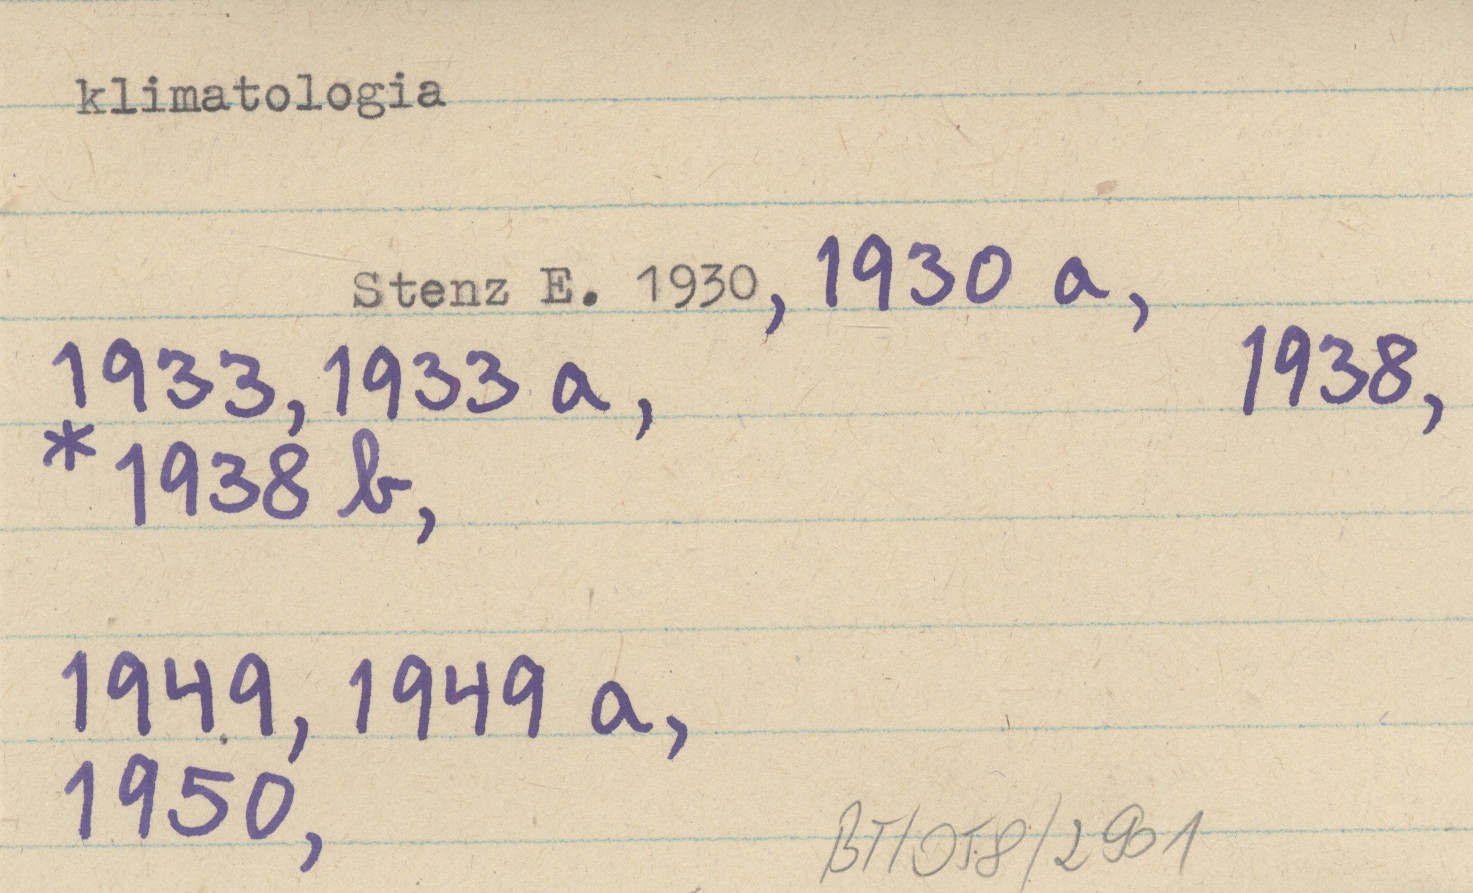 klimatologia
Stenz E. 1930, 1930 a,
1933, 1933 a, 1938,
* 1938 b,
1949, 1949 a,
1950,
BT/OT8/2901